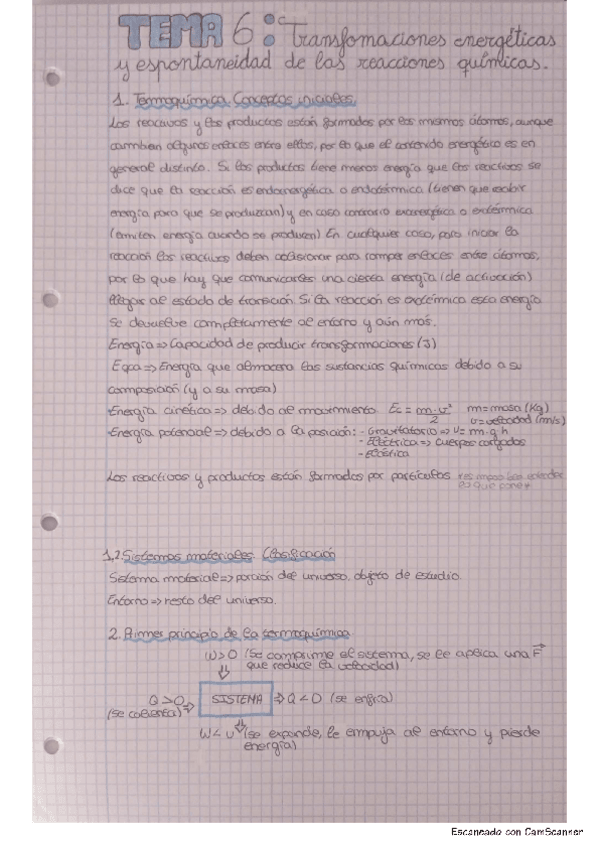 TEMA 6: Transfomaciones energéticas
y espontaneidad de las reacciones químicas.
1. Termoquímica. Conceptos iniciales.
Los reactivos y los productos están formados por los mismos átomos, aunque
cambien algunos enlaces entre ellos, por lo que el contenido energético es en
general distinto. Si los productos tiene menos energía que los reactivos se
dice que la reacción es endoenergética o endotérmica (tienen que recibir
energía para que se produzcan) y en caso contrario exoenergética o exotérmica
(emiten energía cuando se producen) En cualquier caso, para iniciar la
reacción los reactivos deben colisionar para romper enlaces entre átomos,
por lo que hay que comunicarles una cierta energía (de activación)
llegar al estado de transición. Si la reacción es exotérmica esta energía
se devuelve completamente al entorno y aún más.
Energía => Capacidad de producir transformaciones (J)
=> Energía que almacena las sustancias químicas debido a su
composición (y a su masa)
Energía cinética => debido al movimiento Ec = m·v²/2 m=masa (Kg) v=velocidad (m/s)
Energía potencial => debido a la posición: - Gravitatorio => U= m·g·h
- Eléctrica => cuerpos cargados
- Elástica
Los reactivos y productos están formados por partículas
1.2. Sistemas materiales. Clasificación
Sistema material => porción del universo, objeto de estudio.
Entorno => resto del universo.
2. Primer principio de la termoquímica
W>0 (se comprime el sistema, se le aplica una F
que reduce la velocidad)
Q>0 (se calienta) => SISTEMA => Q<0 (se enfría)
(se expande, le empuja al entorno y pierde
energía)
Escaneado con CamScanner